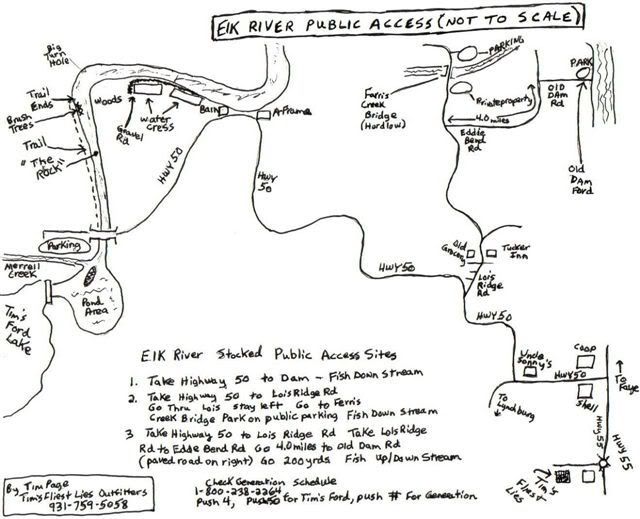 EIK RIVER PUBLIC ACCESS (NOT TO SCALE)
Big
Turn
Hole
PARKING
PARK
Trail
Ends
Woods
Brush
Trees
Gravel
Rd
Water
Cress
Barn
A-Frame
Farris
Creek
Bridge
(Hurdlow)
Private property
4.0 miles
Old
Dam
Rd
Edde
Bend
Rd
Trail
"The
Rock"
HWY 50
HWY
50
Old
Dam
Ford
Parking
Merrell
Creek
Pond
Area
Tim's
Ford
Lake
Old
Grocery
Tucker
Inn
Lois
Ridge
Rd
HWY50
HWY50
Uncle
Sonny's
Coop
HWY50
Shell
To Faye
To
Lynchburg
HWY 55
HWY 55
Tim's
Fliest
Lies
EIK River Stocked Public Access Sites
1. Take Highway 50 to Dam - Fish Down Stream
2. Take Highway 50 to Lois Ridge Rd
Go Thru Lois stay left Go to Ferris
Creek Bridge Park on public parking Fish Down Stream
3 Take Highway 50 to Lois Ridge Rd Take Lois Ridge
Rd to Edde Bend Rd Go 4.0 miles to Old Dam Rd
(paved road on right) Go 200yrds Fish Up/Down Stream
Check Generation Schedule
1-800-238-2264
Push 4, Push 50 for Tim's Ford, push # For Generation
By Tim Page
Tim's Fliest Lies Outfitters
931-759-5058